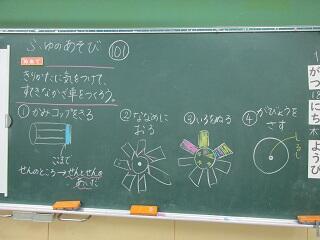 ふゆのあそび 101
めあて
きりかたに気をつけて、
すてきなかざ車をつくろう。
①かみコップをきる
ここまで
せんのところ→せんとせんの
あいだ
②ななめに
おる
③いろをぬる
④がびょうを
さす
しるし
がつ
にち
木
ようび